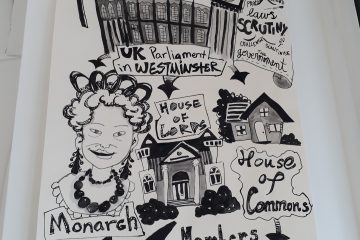 laws
SCRUTINY
government
UK Parliament
in WESTMINSTER
HOUSE
OF
LORDS
House
of
Commons
Monarch
Members